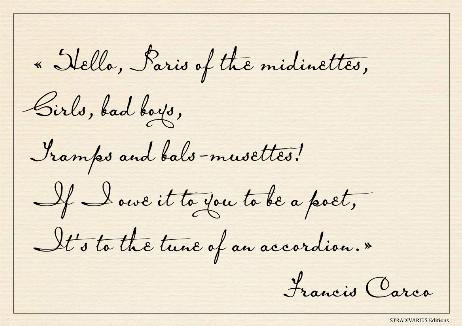 « Hello, Paris of the midinettes,
Girls, bad boys,
Tramps and bals-musettes!
If I owe it to you to be a poet,
It's to the tune of an accordion. »
Francis Carco
STRADIVARIUS Editions